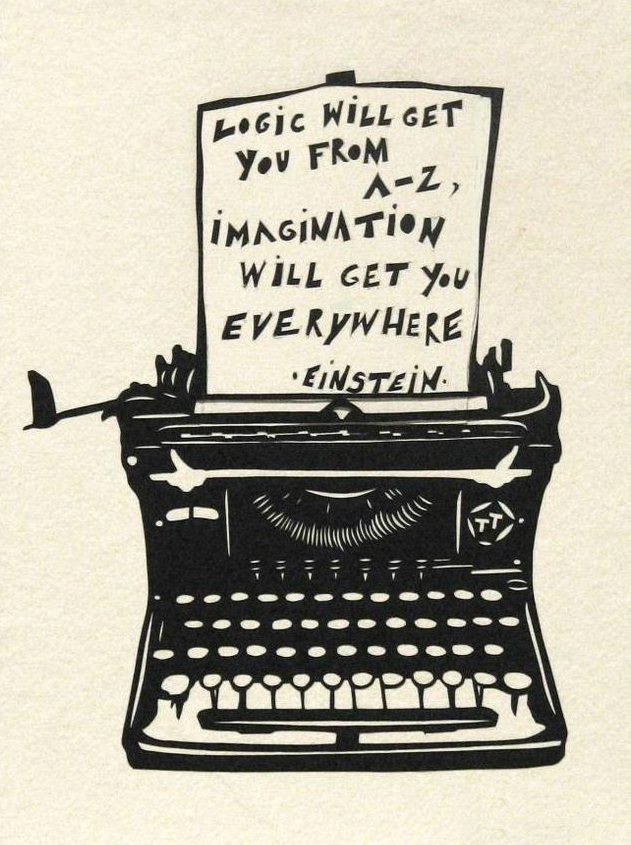 LOGIC WILL GET
YOU FROM
A-Z,
IMAGINATION
WILL GET YOU
EVERYWHERE
·EINSTEIN·
TT